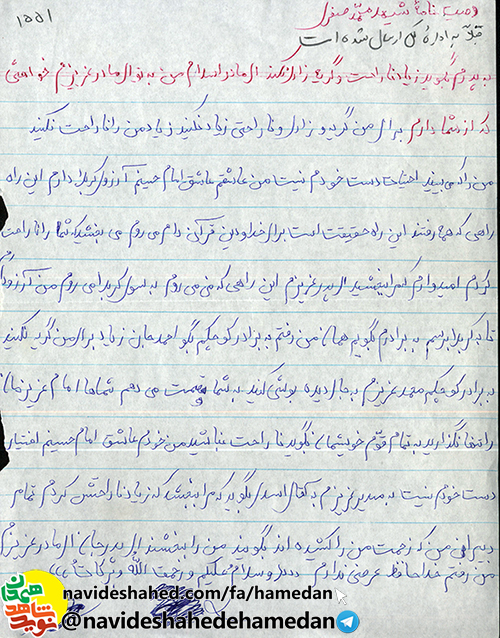 ۱۵۵۱
وصیت نامهٔ شهید محمد صفری
قبلاً به اداره کل ارسال شده است
به پدرم بگویید زیاد ناراحت و گریه زاری نکند ای مادر اسلام من به تو ای مادر عزیزم خواهشی
که از شما دارم برای من گریه و زاری و ناراحتی زیاد نکنید زیاد من را ناراحت نکنید
من را که می بینید اختیارت دست خودم نیست من عاشقم عاشق امام حسینم آرزوی کربلا دارم این راه
راهی که همه رفتند این راه حقیقت است برای خدا و دین قرآن دارم می روم می بخشید که شما را ناراحت
کردم امیدوارم که مرا ببخشید ای پدر عزیزم این راهی که من می روم به سوی کربلا می روم من آرزو دارم
تا به کربلا برسم به برادرم بگویم همان من رفتم به برادر کوچکم بگو احمد جان زیاد برای من گریه نکنید
به برادر کوچکم محمد عزیزم به جای دیده بوسی کنید به شما قسمت می دهم شماها امام عزیزمان
را تنها نگذارید به تمام قوم خویشمان بگویید ناراحت نباشید من خودم عاشق امام حسینم اختیار
دست خودم نیست به مدیر عزیزم به آقای اسدی بگویید که مرا ببخشد که زیاد ناراحتش کردم تمام
دبیرانی من که زحمت من را کشیده اند بگویند من را ببخشند ای پدر جان ای مادر عزیزم
من رفتم خداحافظ عرضی ندارم دیگر و سلام علیکم و رحمت الله و برکاته
نوید شاهد همدان
navideshahed.com/fa/hamedan
@navideshahedehamedan